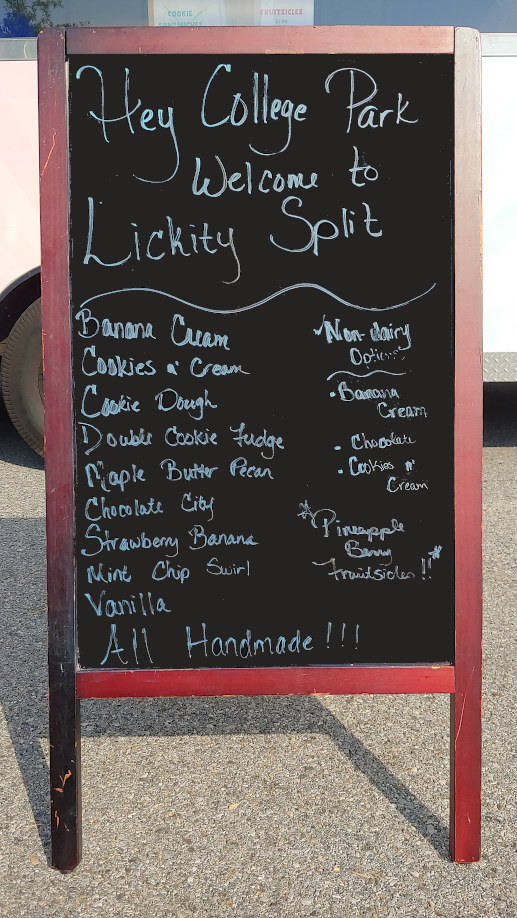 COOKIE
SANDWICHES
FRUITSICLES
Hey College Park
Welcome to
Lickity Split
Banana Cream
Cookies n' Cream
Cookie Dough
Double Cookie Fudge
Maple Butter Pecan
Chocolate City
Strawberry Banana
Mint Chip Swirl
Vanilla
Non-dairy
Options
• Banana
Cream
• Chocolate
• Cookies n'
Cream
Pineapple
Berry
Fruitsicles!!
All Handmade!!!